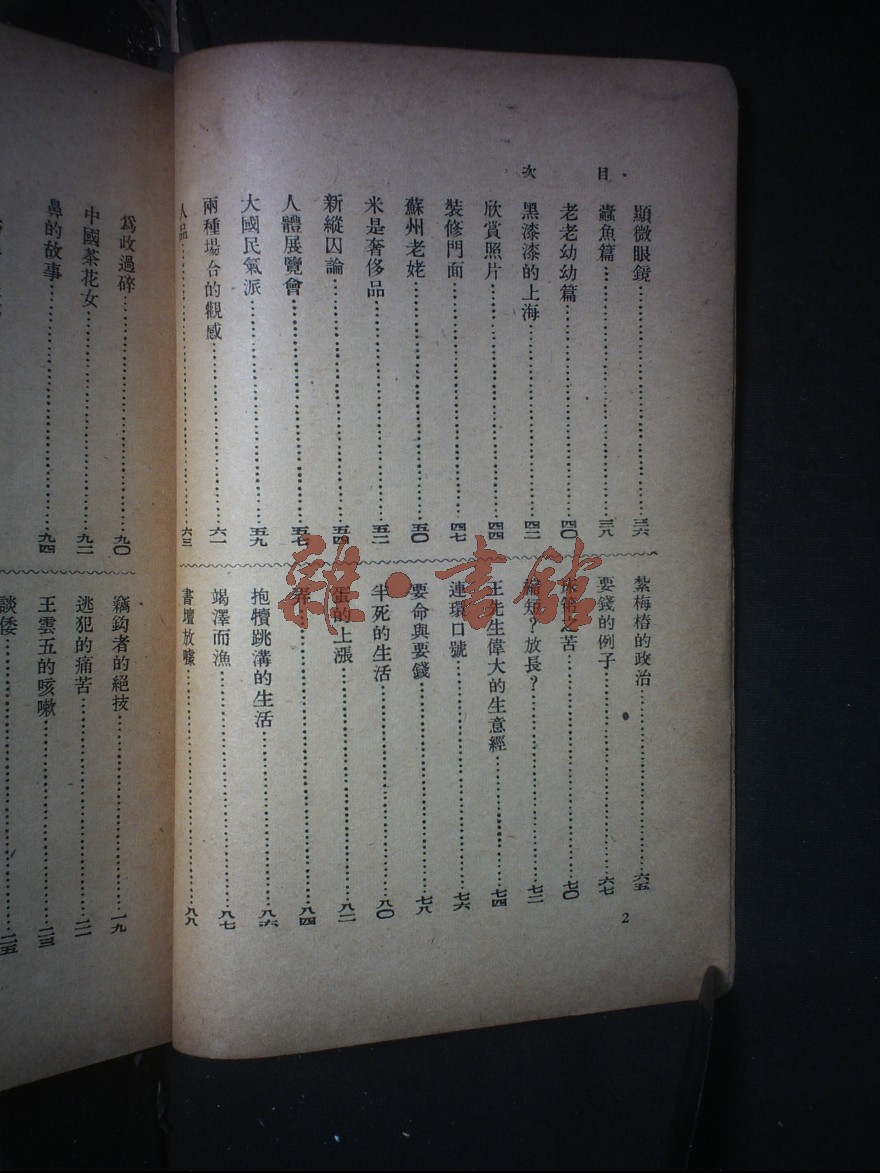 目次
顯微眼鏡 三六
蠹魚篇 三八
老老幼幼篇 四〇
黑漆漆的上海 四二
欣賞照片 四四
裝修門面 四七
蘇州老姥 五〇
米是奢侈品 五二
新縱囚論 五四
人體展覽會 五七
大國民氣派 五九
兩種場合的觀感 六一
人品 六三
紮梅樁的政治 六五
要錢的例子 六七
之苦 七〇
縮短？放長？ 七二
王先生偉大的生意經 七四
連環口號 七六
要命與要錢 七八
半死的生活 八〇
蛋的上漲 八二
八四
抱犢跳溝的生活 八六
竭澤而漁 八七
書壇放噱 八八
2
為政過碎 九〇
中國茶花女 九二
鼻的故事 九四
竊鈎者的絕技
逃犯的痛苦
王雲五的咳嗽
談倭
雜·書館